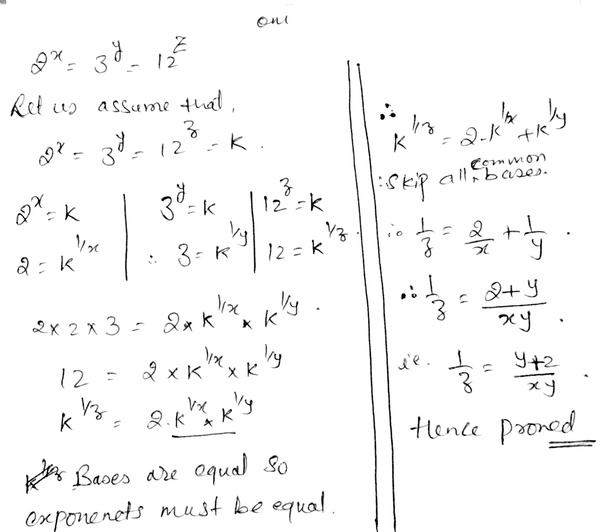 2^x = 3^y = 12^z
Let us assume that,
2^x = 3^y = 12^z = K.
2^x = K | 3^y = K | 12^z = K
2 = K^1/x | ∴ 3 = K^1/y | 12 = K^1/z.
2 × 2 × 3 = 2 × K^1/x × K^1/y.
12 = 2 × K^1/x × K^1/y
K^1/z = 2.K^1/x × K^1/y
Bases are equal so
exponenets must be equal.
∴ K^1/z = 2.K^1/x + K^1/y
:Skip all common bases.
∴ 1/z = 2/x + 1/y.
∴ 1/z = 2+y/xy.
i.e. 1/z = y+2/xy.
Hence proned